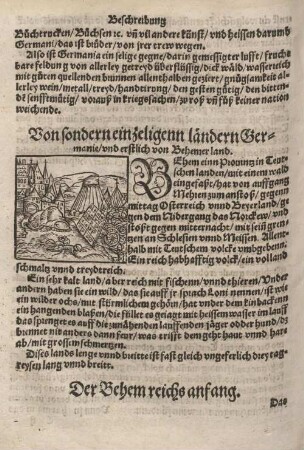 Beschreibung
Büchtrucken/ Büchsen ꝛc. vñ vil andere künst/ vnd heissen darumb
Germani/ das ist brüder/ von jrer trew wegen.
Also ist Germania ein selige gegne/ darin gemissigter lufft/ frucht
bare feldung von allerley getreyd überflüssig/ dick wäld/ wasserreich
mit gůten quellenden brunnen allenthalben geziert/ gnůgsamkeit al
lerley wein/ metall/ treyd/ handtirung/ den gesten gůtig/ den bitten
dẽ senfftmütig/ vorauß in kriegssachen/ zů roß vñ fůß keiner nation
wichende.
Von sondern einzeligenn ländern Ger-
manie/ vnd erstlich von Behemer land.
BEhem einn Prouintz in Teut
schen landen/ mit einem wald
eingefaßt/ hat von auffgang
Mehren zum anstoß/ gegem
mittag Osterreich vnnd Beyerland/ ge
gen den Nidergang das Norckew/ vnd
stoßt gegen mitternacht/ mit seiñ gren
tzen an Schlesien vnnd Meissen. Allent
halb mit Teutschem volck vmbgebenn.
Ein reich habhafftig volck/ ein volland
schmaltz vnnd treydtreich.
Ein sehr kalt land/ aber reich mit fischenn/ vnnd thieren/ Vnder
andern haben sie ein wild/ das sie auff jr sprach Loni nennen/ ist wie
ein wilder ochs/ mit stürmlichem gehörn/ hat vnder dem kin backenn
ein hangenden blasen/ die füllet es gejagt mit heissem wasser im lauff
das sprengt es auff die zunähenden lauffenden jäger odder hund/ dz
brennet niñ anders dann feur/ was es trifft dem geht haut vnnd har
ab/ mit grossem schmertzen.
Dises lands lenge vnnd breitte ist fast gleich vngeferlich drey tag-
reysen lang vnnd breitt.
Der Behem reichs anfang.
Das